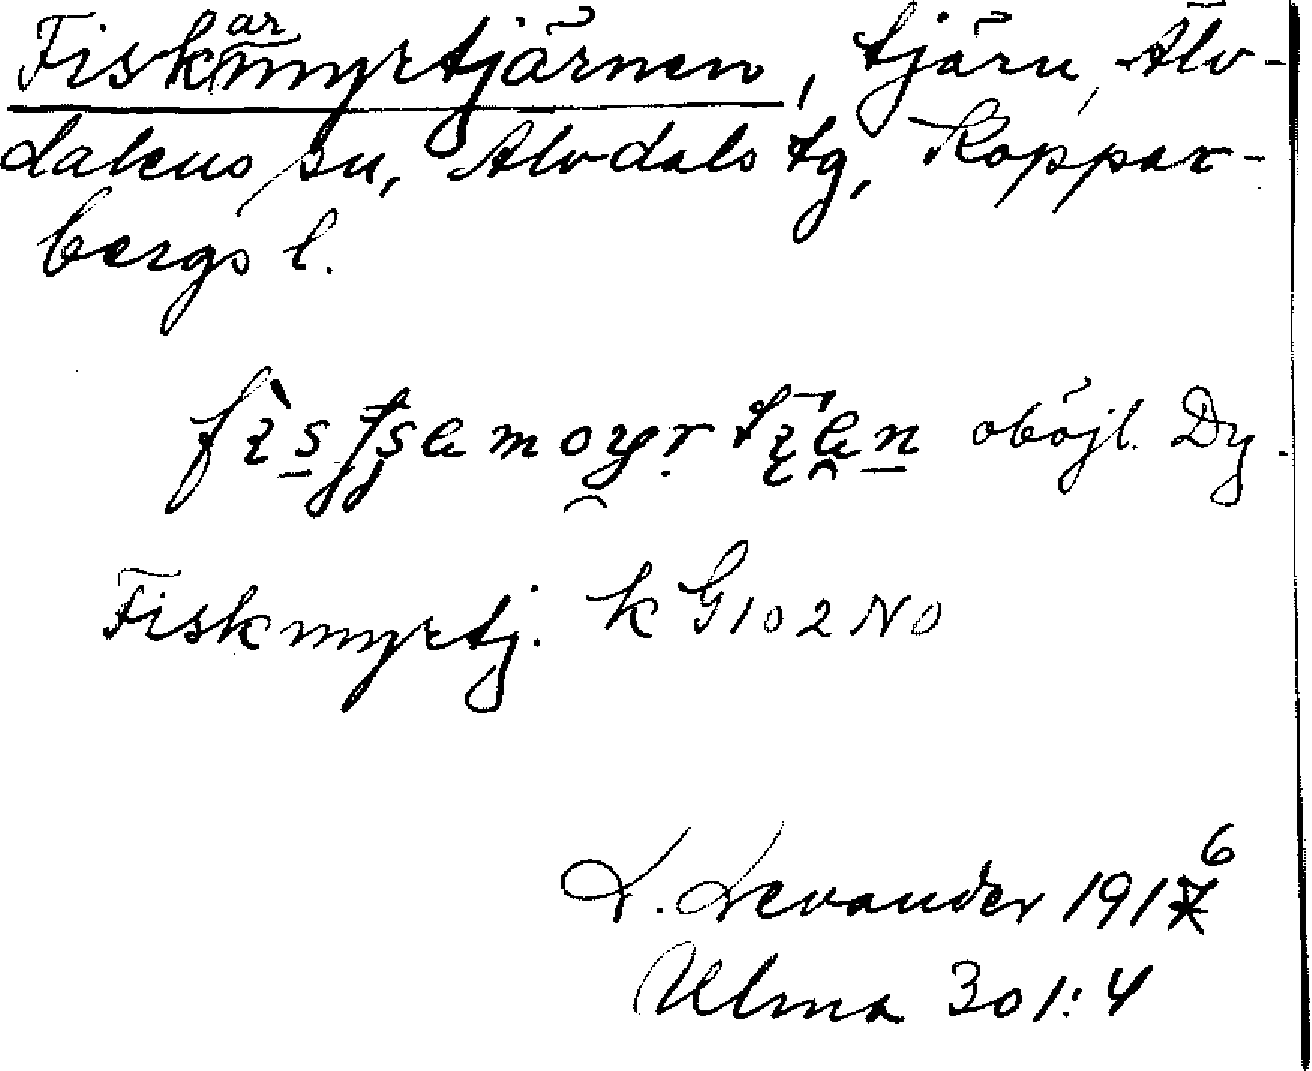 Fiskarmyrtjärnen, tjärn, Älv-
dalens sn, Älvdals tg, Koppar-
bergs l.
oböjl. Dy.
Fiskmyrtj. k G102NO
L. Levander 1916
Ulma 301:4